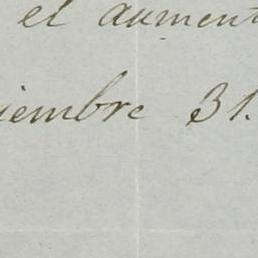 el aument
iembre 31.